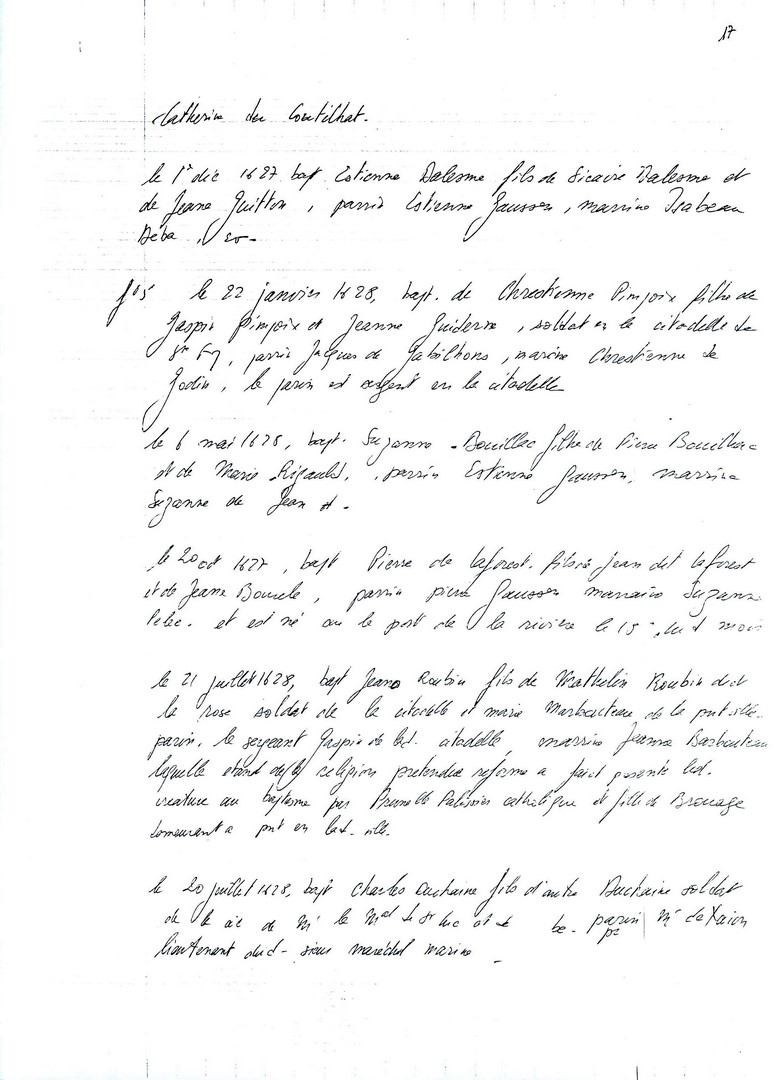 17
Catherine du Coutilhat.
le 1er dec 1627 bapt Estienne Dalesme fils de Sicaire Dalesme et
de Jeane Guitton, parrin Estienne Gaussen, marrine Isabeau
Deba
f° 5 le 22 janvier 1628, bapt. de Chrestienne Pimpoix filhe de
Jaspin Pimpoix et Jeanne Guiderne, soldat en la citadelle de
Ste Foy, parrin Jacques de Gabilhons, marine Chrestienne de
Jodin, le parin est sergent en la citadelle
le 6 mai 1628, bapt. Suzanne Bouillac filhe de Pierre Bouilhac
et de Marie Rigauld, parrin Estienne Gaussen, marrine
Suzanne de Jean
le 20 oct 1627, bapt Pierre de laforest. fils de jean dit laforest
et de Jeane Bourele, parrin pierre Gaussen marraine Suzanne
et est né sur le port de la riviere le 15 dud mois
le 21 juillet 1628, bapt Jeano Roubin fils de Mathelin Roubin dict
la rose soldat de la citadelle et marie Marbouteau de la pnt ville.
parin, le sergeant Jaspin de lad. citadelle, marrine Jeanne Barbouteau
laquelle etand de la religion pretendue reforme a faict presente lad.
creature au baptesme par Prunelle Palissier catholique et fille de Brouage
demeurant a pnt en lad. ville.
le 20 juillet 1628, bapt Charles Duchaine fils d'autre Duchaine soldat
de la cie de Mr le Mal de St Luc et de be. parin Mr de Xaion
lieutenant dud- sieur maréchal marine